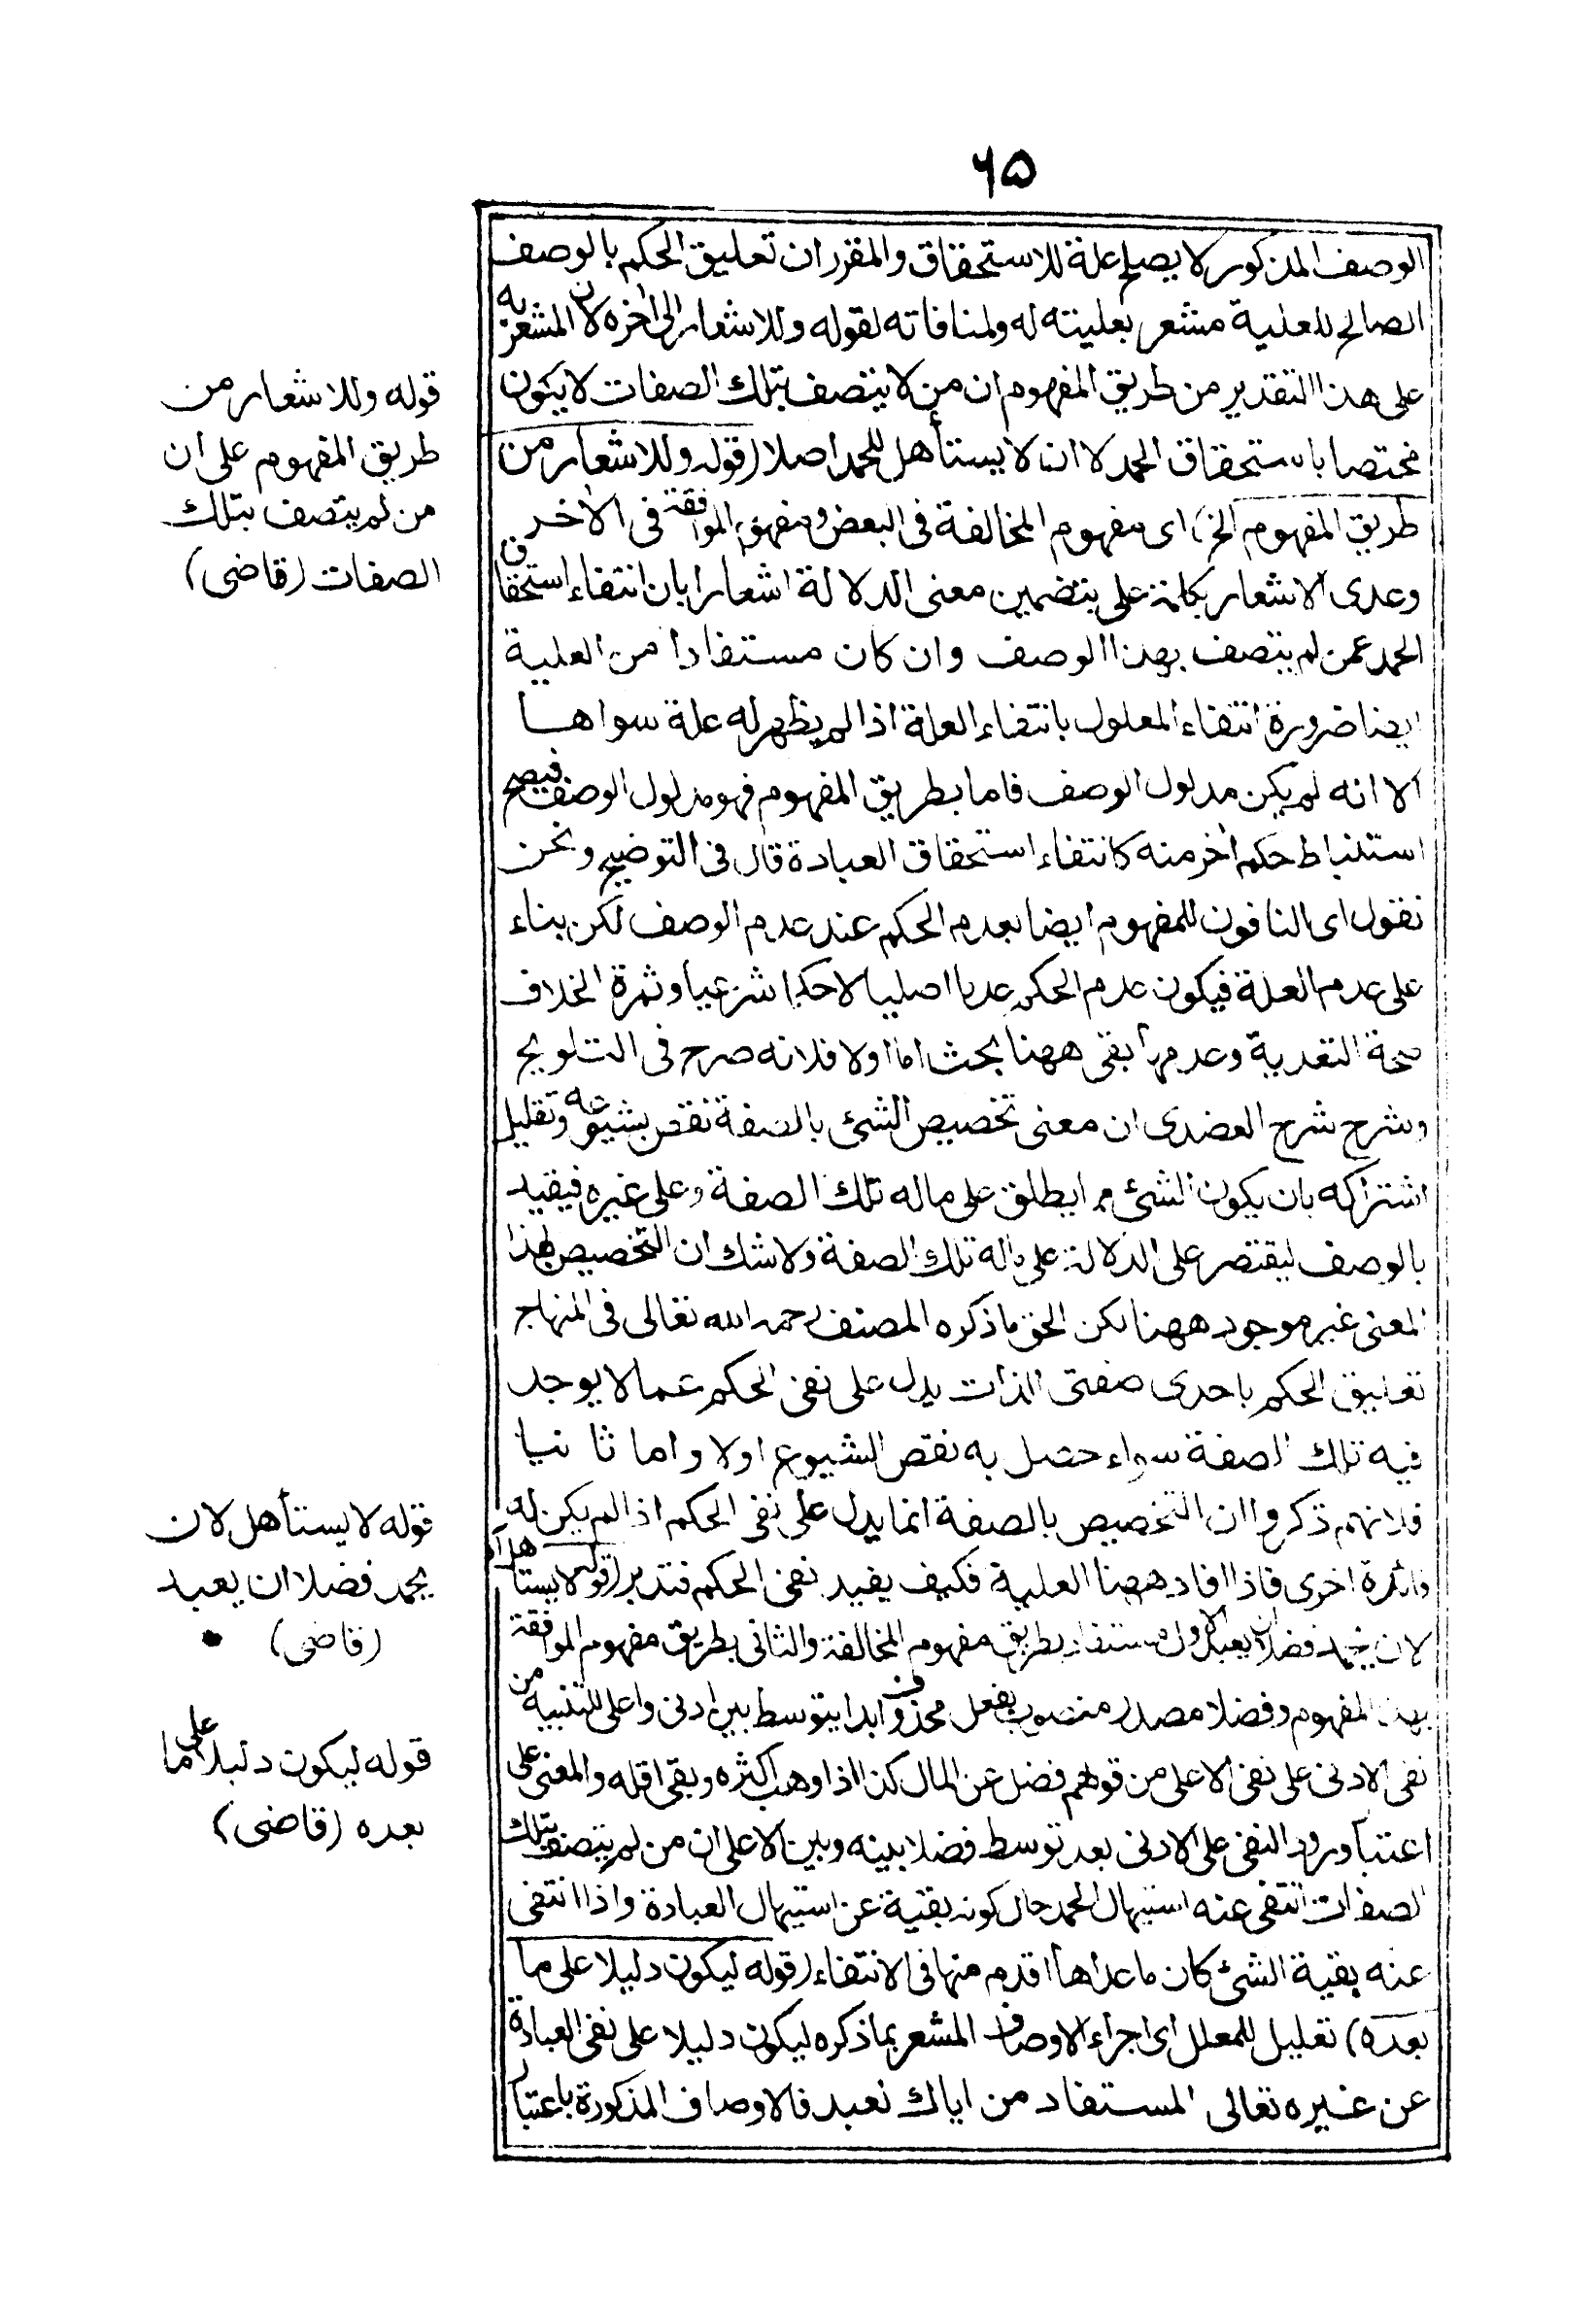 ٦٥
الوصف المذكور لا يصلح علة للاستحقاق والمقرر ان تعليق الحكم بالوصف
الصالح للعلية مشعر بعليته له ولمنافاته لقوله وللاشعار الى اخره لان المشعر به
على هذا التقدير من طريق المفهوم ان من لا يتصف بتلك الصفات لا يكون
مختصا باستحقاق الحمد لا انه لا يستأهل للحمد اصلا (قوله وللاشعار من
طريق المفهوم الخ) اى مفهوم المخالفة فى البعض ومفهوم الموافقة فى الاخر
وعدى الاشعار بكلمة على بتضمين معنى الدلالة اشعارا بان انتفاء استحقاق
الحمد عمن لم يتصف بهذا الوصف وان كان مستفادا من العلية
ايضا ضرورة انتفاء المعلول بانتفاء العلة اذا لم يظهر له علة سواها
الا انه لم يكن مدلول الوصف فاما بطريق المفهوم فهو مدلول الوصف فيصح
استنباط حكم اخر منه كانتفاء استحقاق العبادة قال فى التوضيح ونحن
نقول اى النافون للمفهوم ايضا بعدم الحكم عند عدم الوصف لكن بناء
على عدم العلة فيكون عدم الحكم عدما اصليا لا حكما شرعيا وثمرة الخلاف
صحة التعدية وعدمها بقى ههنا بحث اما اولا فلانه صرح فى التلويح
وشرح شرح العضدى ان معنى تخصيص الشئ بالصفة نقص بشيوعه وتقليل
اشتراكه بان يكون الشئ مما يطلق على ماله تلك الصفة وعلى غيره فيقيد
بالوصف ليقتصر على الدلالة على ماله تلك الصفة ولا شك ان التخصيص بهذا
المعنى غير موجود ههنا لكن الحق ما ذكره المصنف رحمه الله تعالى فى المنهاج
تعليق الحكم باحدى صفتى الذات يدل على نفى الحكم عما لا يوجد
فيه تلك الصفة سواء حصل به نقص الشيوع اولا واما ثانيا
فلانهم ذكروا ان التخصيص بالصفة انما يدل على نفى الحكم اذا لم يكن له
فائدة اخرى فاذا افاد ههنا العلية فكيف يفيد نفى الحكم فتدبر (قوله لا يستأهل
لان يحمد فضلا ان يعبد) الاول مستفاد بطريق مفهوم المخالفة والثانى بطريق مفهوم الموافقة
بهذا المفهوم وفضلا مصدر منصوب بفعل محذوف ابدا يتوسط بين ادنى واعلى للتنبيه من
نفى الادنى على نفى الاعلى من قولهم فضل عن المال كذا اذا وهب اكثره وبقى اقله والمعنى على
اعتبار ورود النفى على الادنى بعد توسط فضلا بينه وبين الاعلى ان من لم يتصف بتلك
الصفات انتفى عنه استيهال الحمد حال كونه بقية عن استيهال العبادة واذا انتفى
عنه بقية الشئ كان ما عداها اقدم منها فى الانتفاء (قوله ليكون دليلا على ما
بعده) تعليل للمعلل اى اجراء الاوصاف المشعر بما ذكره ليكون دليلا على نفى العبادة
عن غيره تعالى المستفاد من اياك نعبد فالاوصاف المذكورة باعتبار
قوله وللاشعار من
طريق المفهوم على ان
من لم يتصف بتلك
الصفات (قاضى)
قوله لا يستأهل لان
يحمد فضلا ان يعبد
(قاضى)
قوله ليكون دليلا على ما
بعده (قاضى)